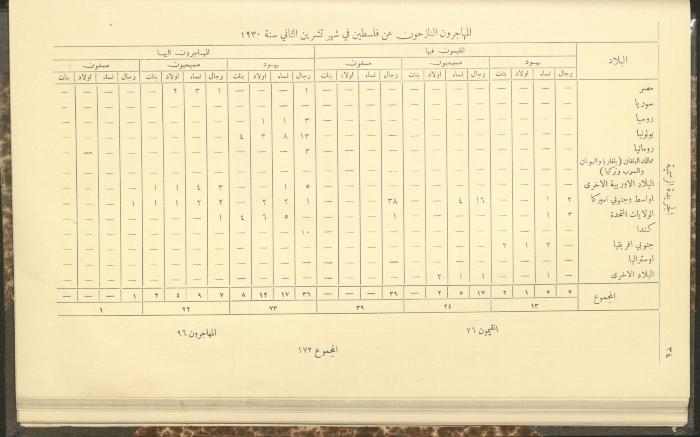 المهاجرون النازحون عن فلسطين في شهر تشرين الثاني سنة ١٩٣٠
البلاد المقيمون فيها المهاجرون اليها
يهود مسيحيون مسلمون يهود مسيحيون مسلمون
رجال نساء اولاد بنات رجال نساء اولاد بنات رجال نساء اولاد بنات رجال نساء اولاد بنات رجال نساء اولاد بنات رجال نساء اولاد بنات
مصر — — — — — — — — — — — — ١ — — — ١ ٣ ٢ — — — — —
سوريا — — — — — — — — — — — — — — — — — — — — — — — —
روسيا — — — — — — — — — — — — ٣ ١ ١ — — — — — — — — —
بولونيا — — — — — — — — — — — — ١٣ ٨ ٣ ٤ — — — — — — — —
رومانيا — — — — — — — — — — — — ٣ — — — — — — — — — — —
ممالك البلقان (بلغاريا واليونان
والسرب وتركيا) — — — — — — — — — — — — — — — — — — — — — — — —
البلاد الاوربية الاخرى — — — — — — — — — — — — ٥ ١ — — ٣ ٤ ١ ١ — — — —
اواسط وجنوبي اميركا ٢ ١ — — ١٦ ٤ — — ٣٨ — — — ١ ٢ ٢ — ٢ ٢ ١ ١ ١ — — —
الولايات المتحدة ٣ ١ — — — — — — ١ — — — — ٥ ٦ ٤ ١ — — — — — — —
كندا — — — — — — — — — — — — ١٠ — — — — — — — — — — —
جنوبي افريقيا — ٢ ١ ٢ — — — — — — — — — — — — — — — — — — — —
اوستراليا — — — — — — — — — — — — — — — — — — — — — — — —
البلاد الاخرى — ١ — — ١ ١ ٢ — — — — — — — — — — — — — — — — —
المجموع ٥ ٥ ١ ٢ ١٧ ٥ ٢ — ٣٩ — — — ٣٦ ١٧ ١٢ ٨ ٧ ٩ ٤ ٢ ١ — — —
١٣ ٢٤ ٣٩ ٧٣ ٢٢ ١
المقيمون ٧٦ المهاجرون ٩٦
المجموع ١٧٢
الجريدة الرسمية
٣٤